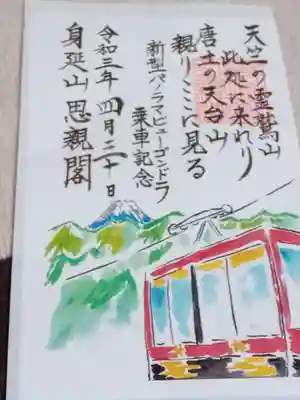 天竺の霊鷲山
此処に来れり
唐土の天台山
親りここに見る
新型パノラマビューゴンドラ
乗車記念
令和三年四月三十日
身延山思親閣